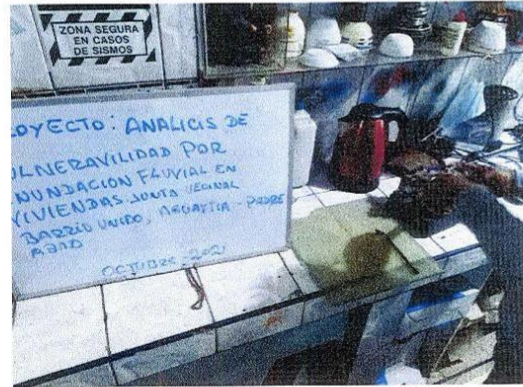 ZONA SEGURA
EN CASOS
DE SISMOS
OYECTO: ANALICIS DE
ULNERAVILIDAD POR
NUNDACION FLUVIAL EN
VIVIENDAS JUNTA VECINAL
BARRIO UNIDO, AGUAYTIA - PADRE
ABAD
OCTUBRE - 2021